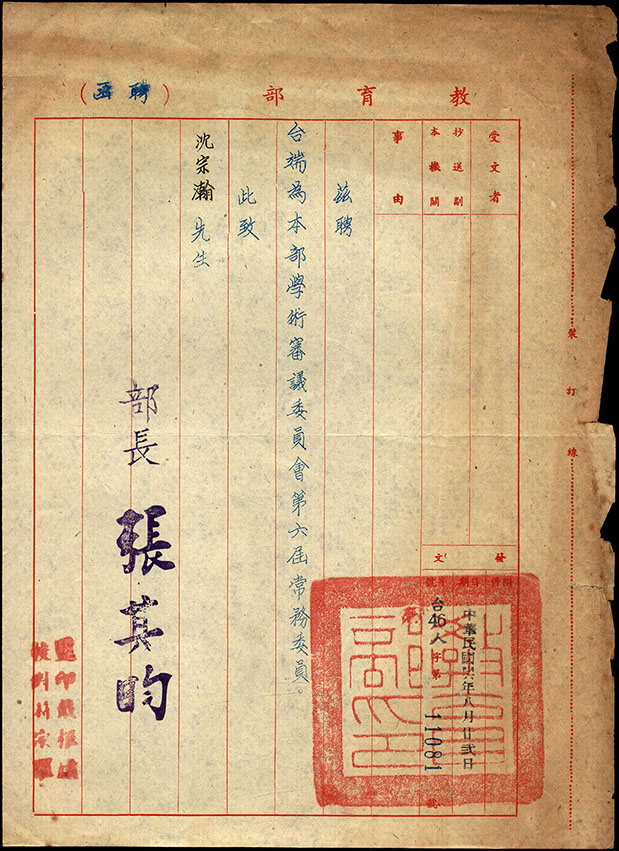 教育部（聘函）
裝打線
受文者
抄送副本機關
事由
發文
附件
日期
字號
中華民國卌六年八月廿弍日
台46人字第11081號
茲聘
台端為本部學術審議委員會第六屆常務委員。
此致
沈宗瀚先生
部長 張其昀
監印
校對